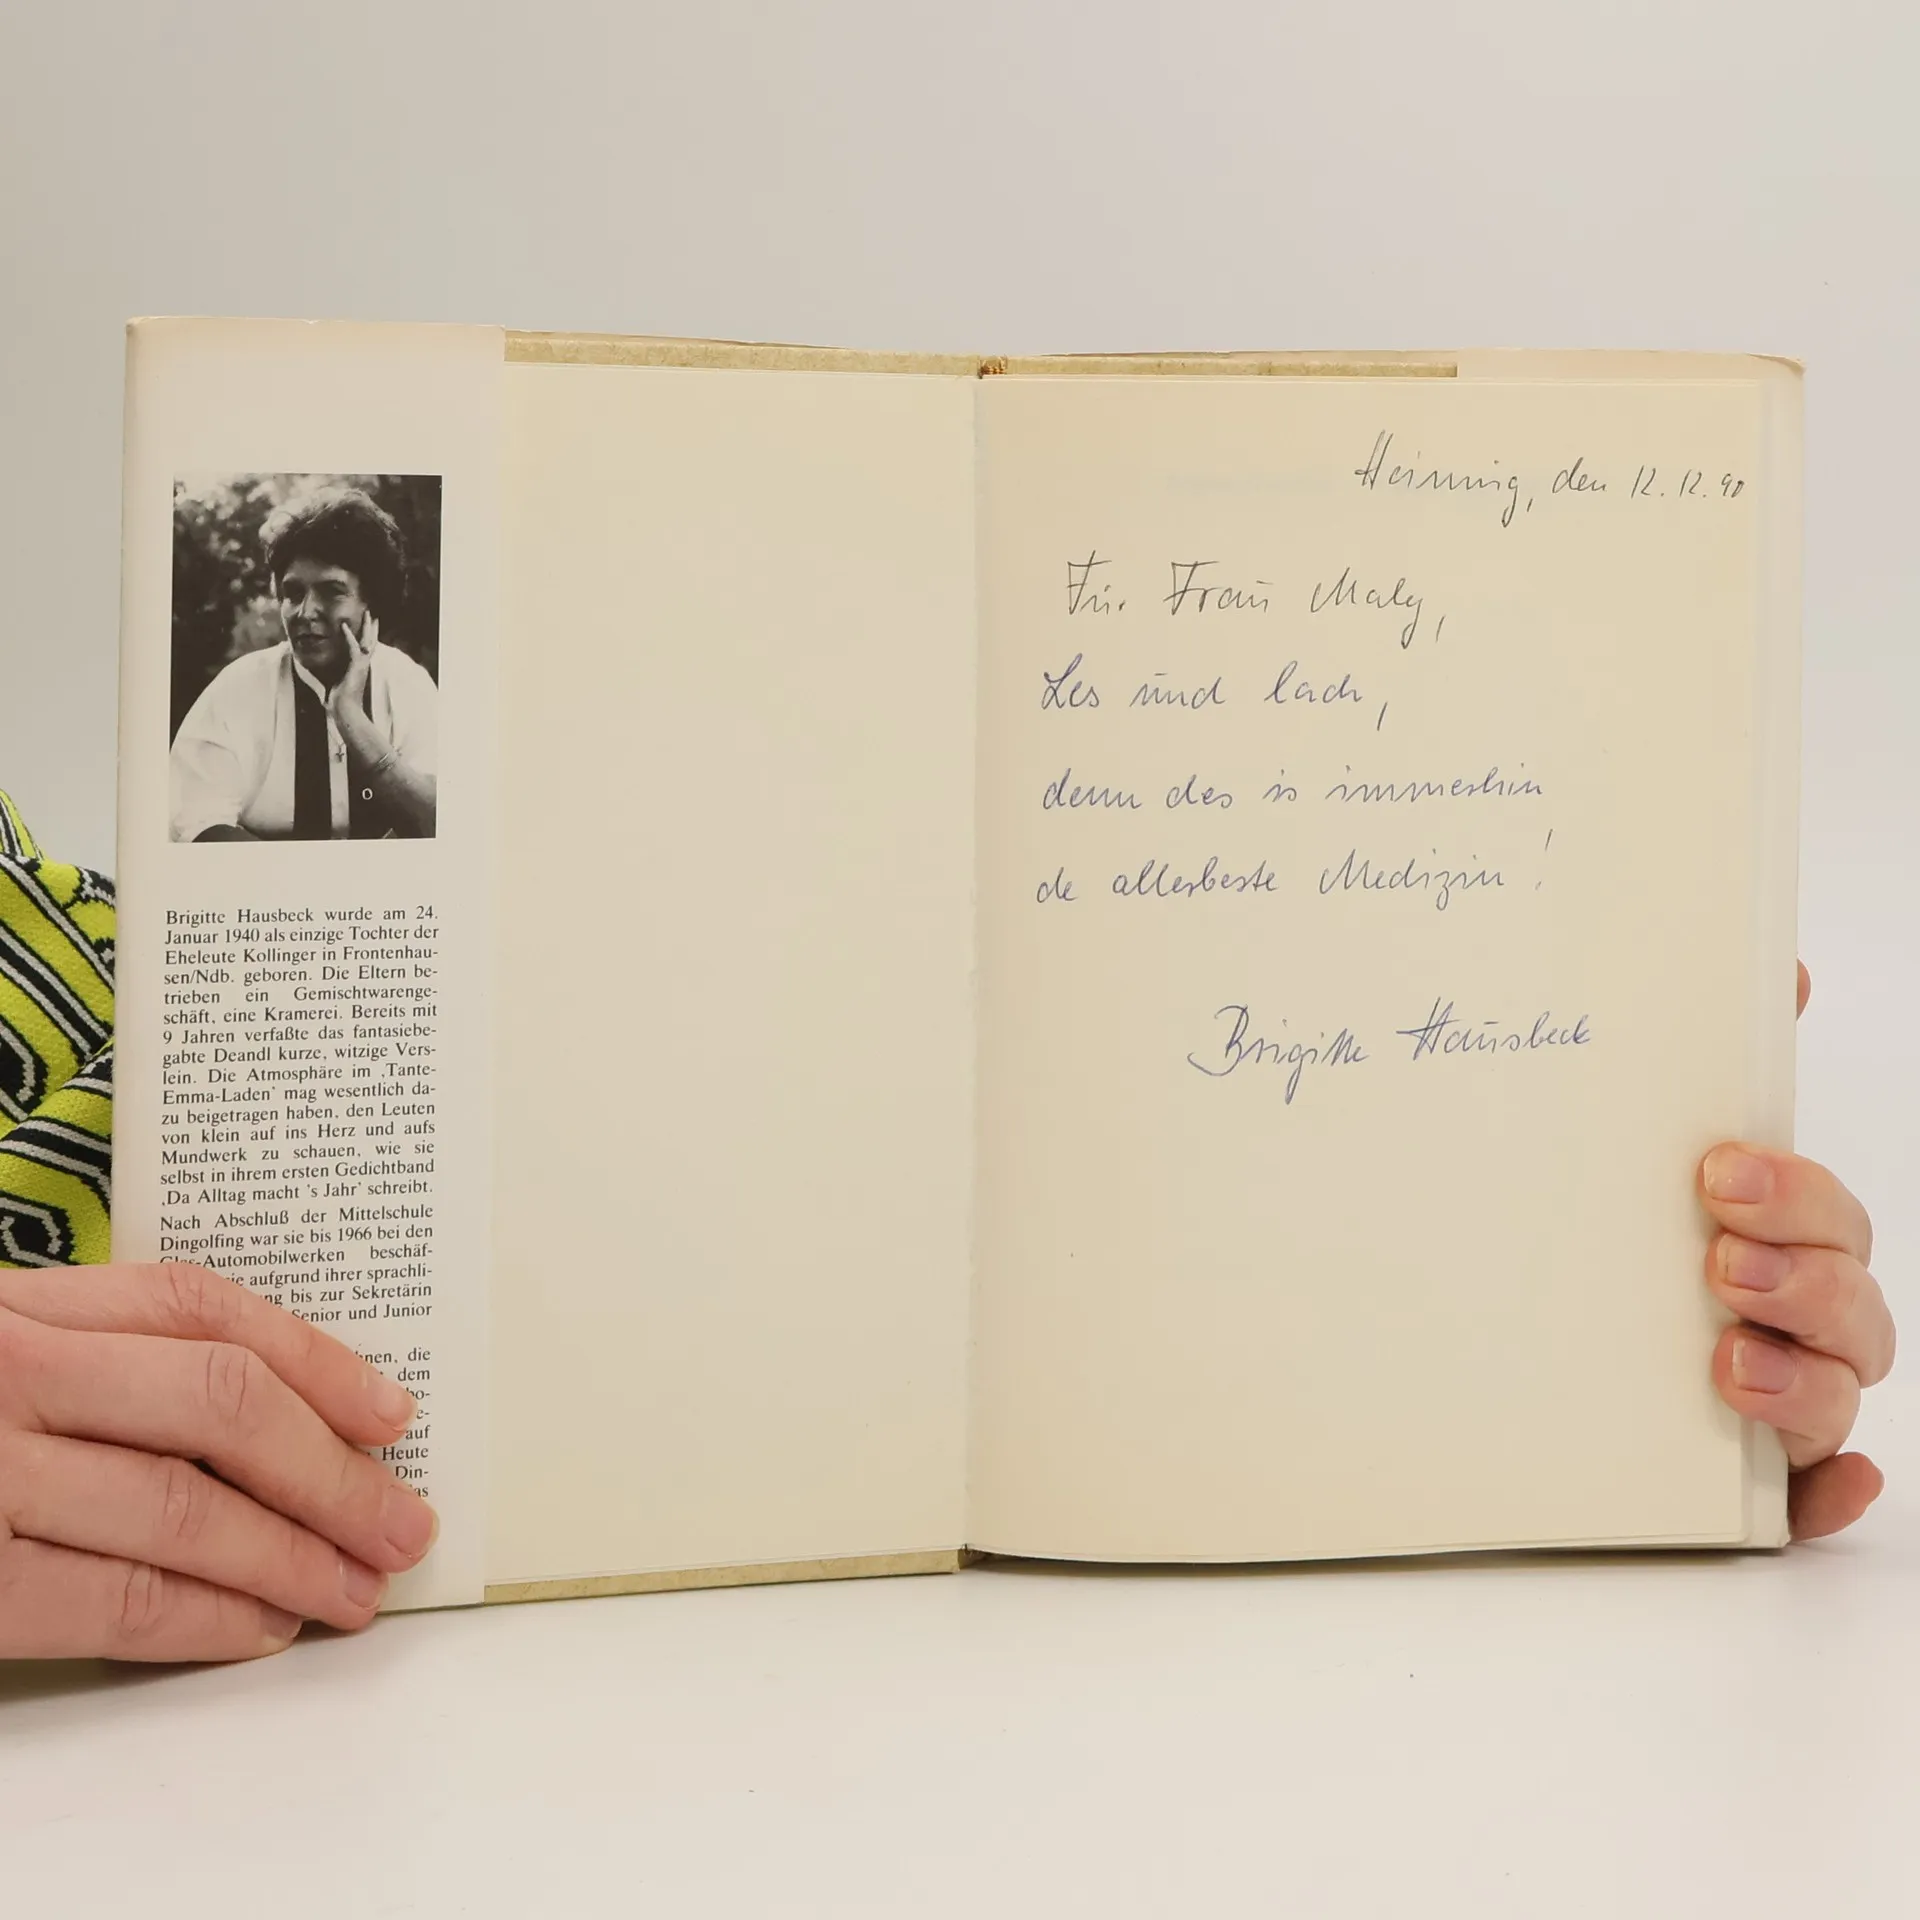 Brigitte Hausbeck wurde am 24.
Januar 1940 als einzige Tochter der
Eheleute Kollinger in Frontenhau-
sen/Ndb. geboren. Die Eltern be-
trieben ein Gemischtwarenge-
schäft, eine Kramerei. Bereits mit
9 Jahren verfaßte das fantasiebe-
gabte Deandl kurze, witzige Vers-
lein. Die Atmosphäre im ‚Tante-
Emma-Laden' mag wesentlich da-
zu beigetragen haben, den Leuten
von klein auf ins Herz und aufs
Mundwerk zu schauen, wie sie
selbst in ihrem ersten Gedichtband
‚Da Alltag macht 's Jahr' schreibt.
Nach Abschluß der Mittelschule
Dingolfing war sie bis 1966 bei den
Glas-Automobilwerken beschäf-
sie aufgrund ihrer sprachli-
bis zur Sekretärin
Senior und Junior
die
dem
auf
Heute
Din-
Heining, den 12.12.90
Für Frau Maly,
Les und lach,
denn des is immerhin
de allerbeste Medizin!
Brigitte Hausbeck